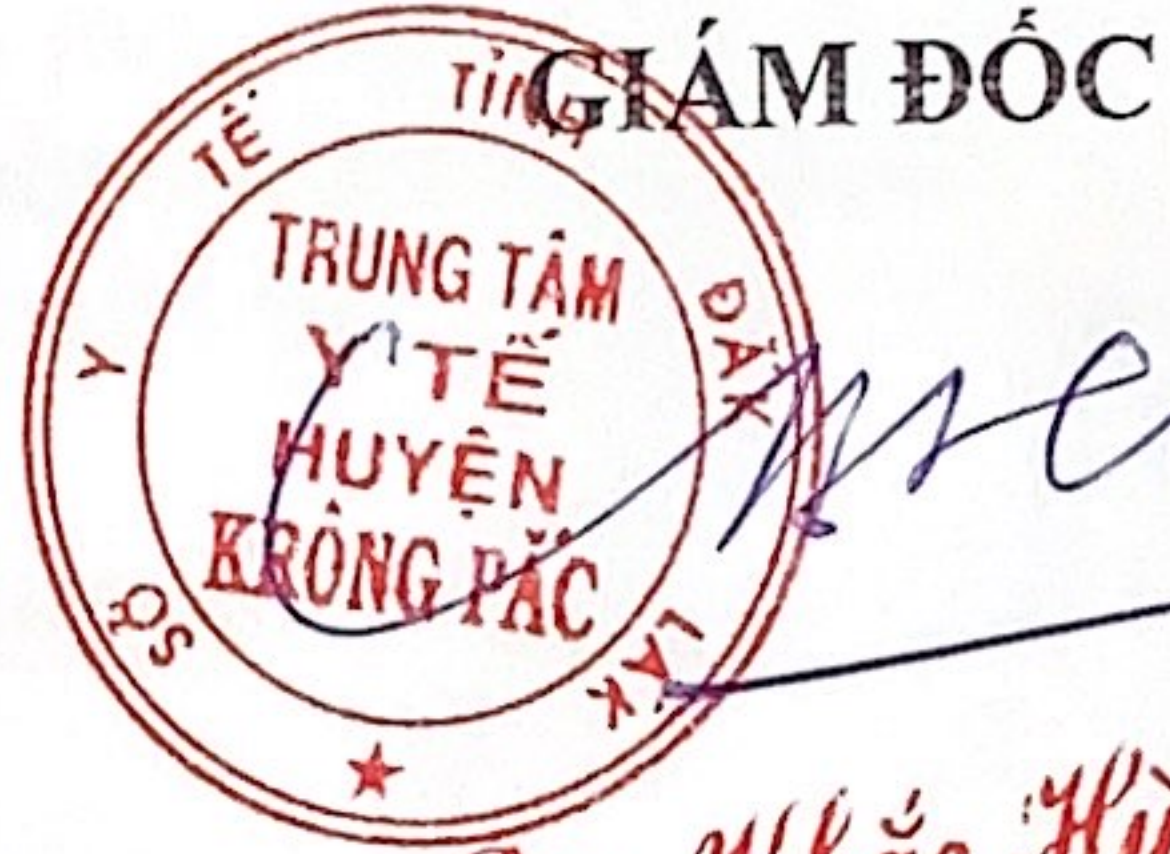 GIÁM ĐỐC
SỞ Y TẾ TỈNH ĐẮK LẮK
TRUNG TÂM
Y TẾ
HUYỆN
KRÔNG PẮC